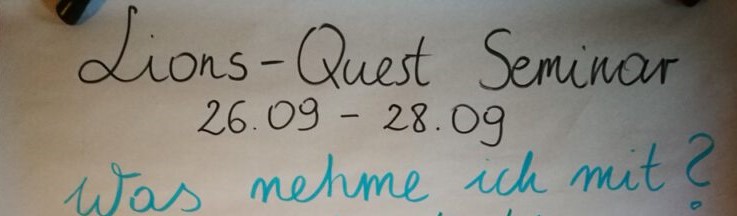 Lions-Quest Seminar
26.09 - 28.09
Was nehme ich mit?